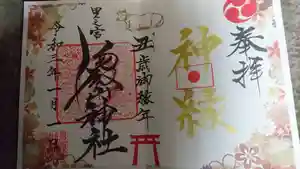 奉拝
神紋
丑歳御縁年
里之宮
神社
令和三年一月一日